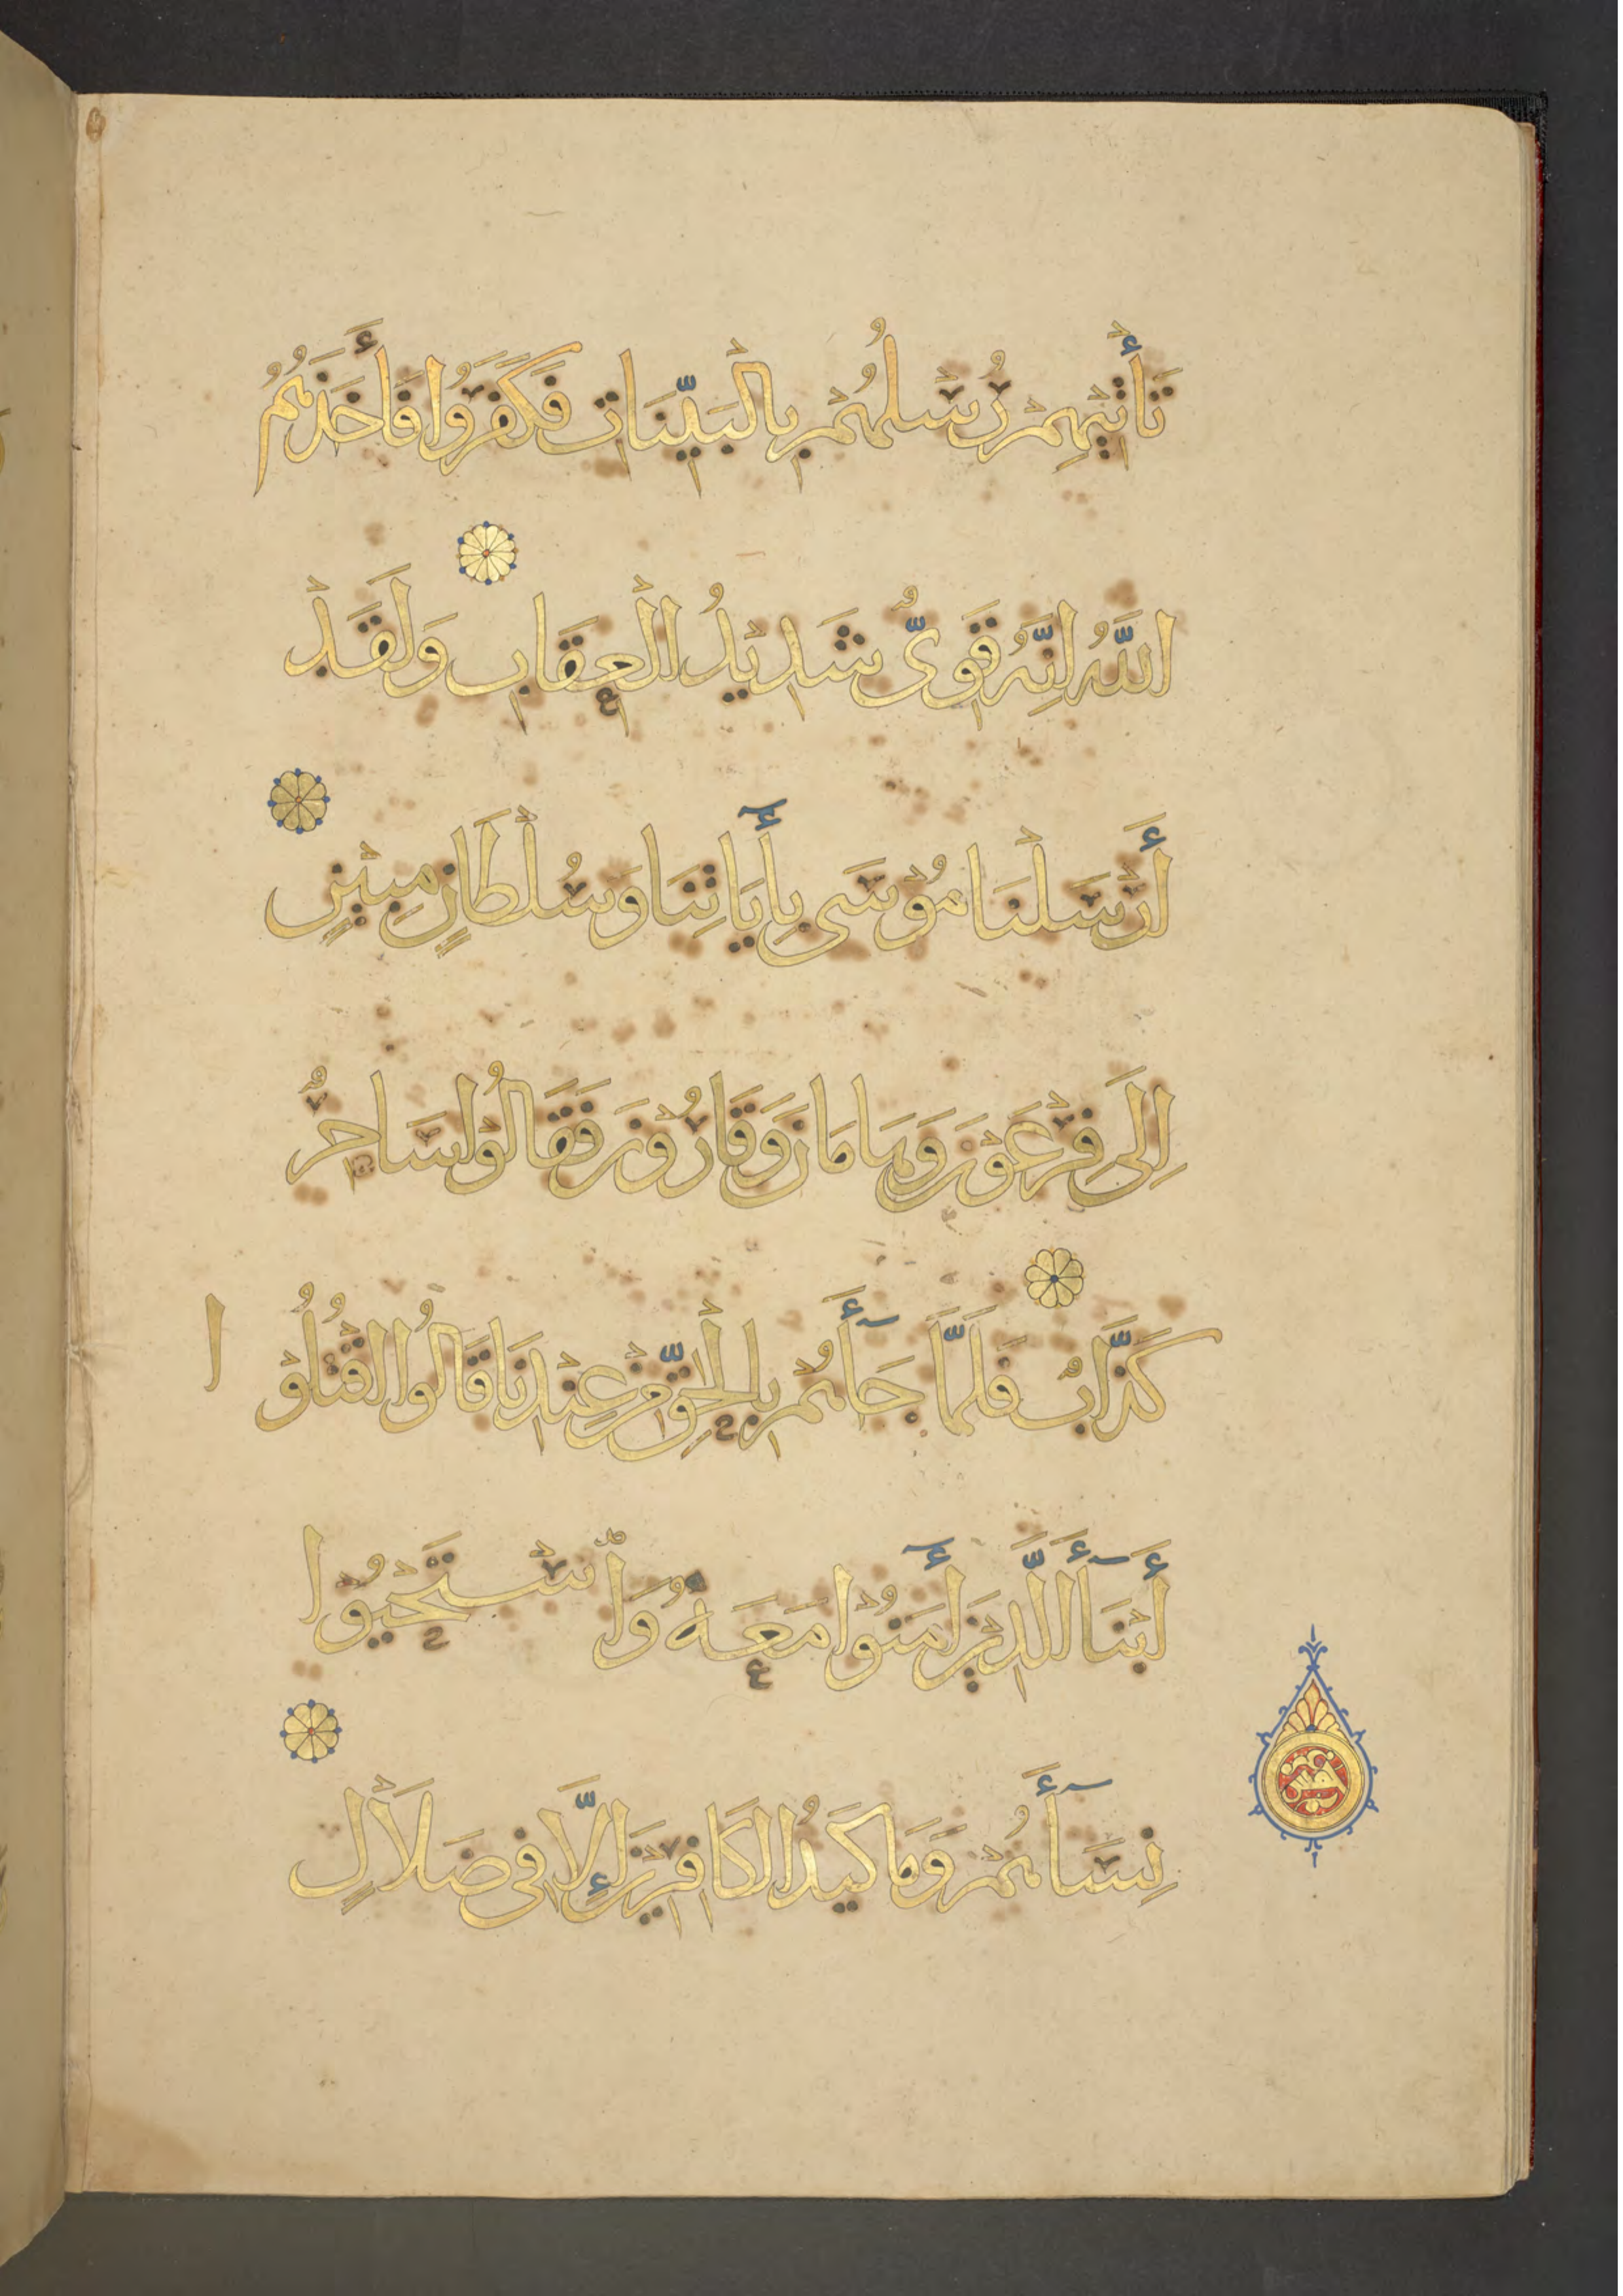 تَأْتِيهِمْ رُسُلُهُمْ بِالْبَيِّنَاتِ فَكَفَرُوا فَأَخَذَهُمُ
اللَّهُ إِنَّهُ قَوِيٌّ شَدِيدُ الْعِقَابِ وَلَقَدْ
أَرْسَلْنَا مُوْسَى بِأَيَاتِنَا وَسُلْطَانٍ مُبِيْنٍ
إِلَى فِرْعَوْنَ وَهَامَانَ وَقَارُوْنَ فَقَالُوْا سَاحِرٌ
كَذَّابٌ فَلَمَّا جَآءَهُمْ بِالْحَقِّ مِنْ عِنْدِنَا قَالُوا اقْتُلُوْا
أَبْنَآءَ الَّذِيْنَ أَمَنُوْا مَعَهُ وَاسْتَحْيُوْا
نِسَآءَهُمْ وَمَا كَيْدُ الْكَافِرِيْنَ إِلَّا فِي ضَلَالٍ